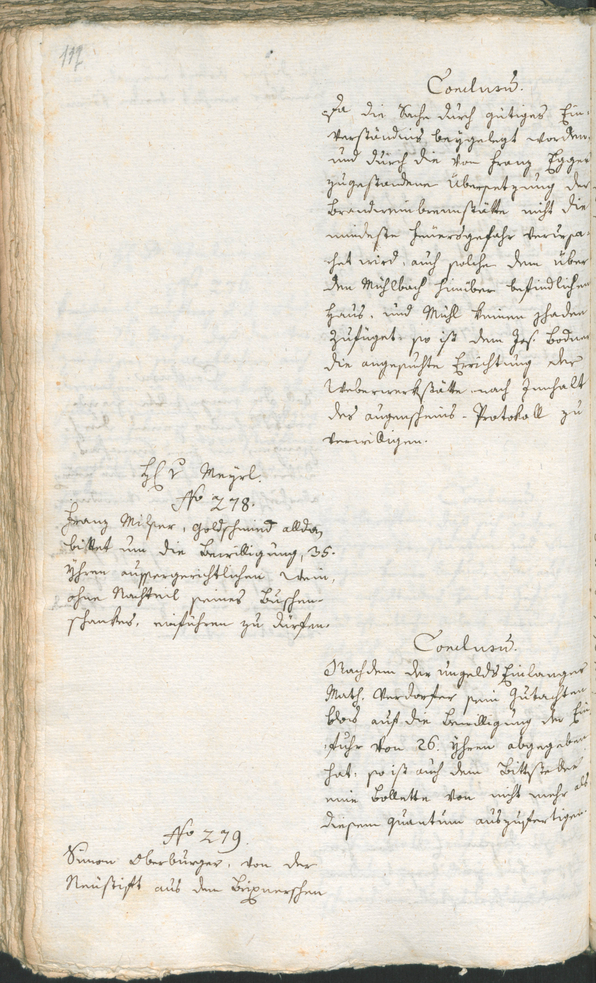 117
Conclusum.
Da die Sache durch gütiges Ein-
verständnis beygelegt worden
und durch die von Franz Egger
zugestandene Übersetzung der
Brandweinbrennstätte nicht die
mindeste Feuersgefahr verursa-
chet wird, auch solche dem über
den Mühlbach hinüber befindlichen
Haus, und Mühl keinen schaden
zufüget, so ist dem Jos. Bodner
die angesuchte Errichtung der
Weberwerkstätte nach Innhalt
des augenscheins-Protokoll zu
verwilligen.
H. v Meyrl.
No 278.
Franz Milser, Goldschmied allda,
bittet um die Bewilligung, 35.
Yhren aussergerichtlichen Wein,
ohne Nachteil seines Buschen-
schankes, einführen zu dürfen.
Conclusum.
Nachdem der ungelds Einlanger
Math. Verdorfer sein Gutachten
blos auf die Bewilligung der Ein-
fuhr von 26. Yhren abgegeben
hat, so ist auch dem Bittsteller
eine Bollette von nicht mehr als
diesem quantum auszufertigen.
No 279.
Simon Oberburger, von der
Neustift aus dem Brixnerschen